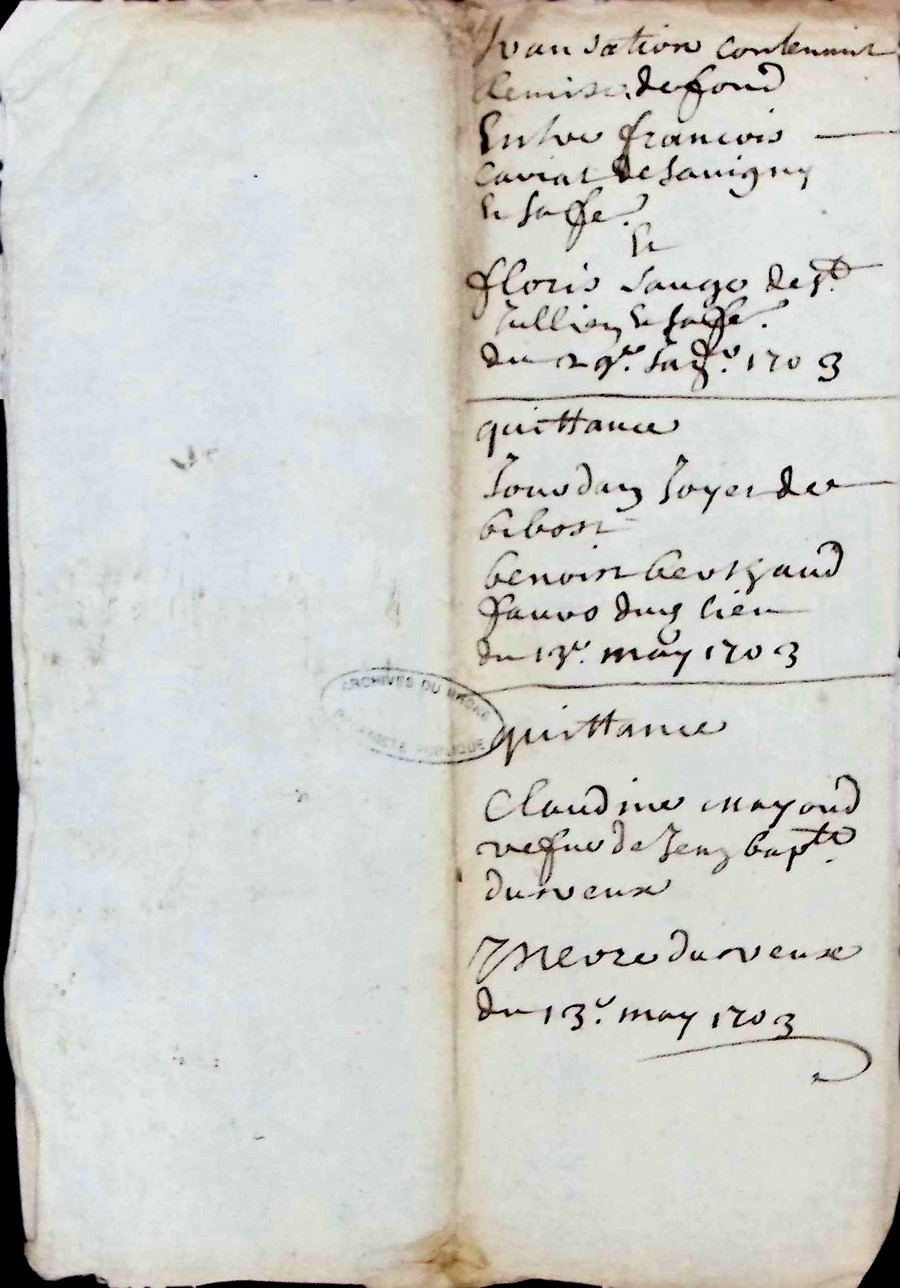 transation contenant
Remise de fond
Entre francois
Caviat de Savigny
Et sa fe.
Et
floris Sauge de st
Jullien Et sa fe.
du 29e. 1703
quittance
Jourdan Joyet de
bibost
benoist berthaud
fauro dud lieu
du 13e. may 1703
ARCHIVES DU RHONE
quittance
Claudine mayoud
vefue de Jean bapte.
durveux
durveux
du 13e. may 1703